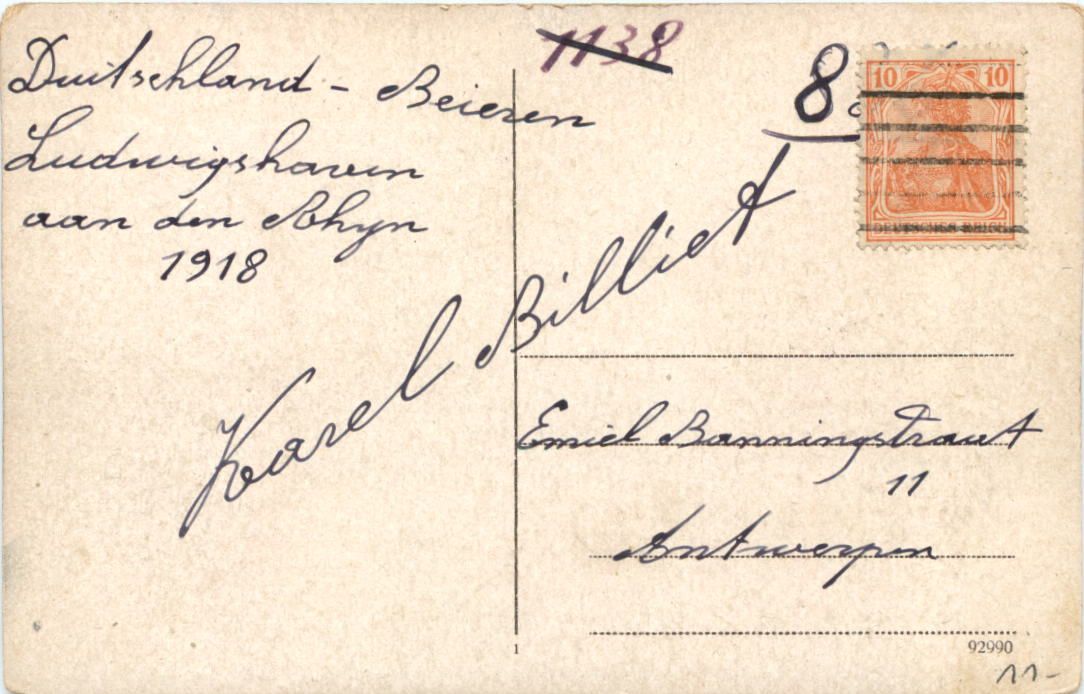 1138
Duitschland - Beieren
Ludwigshaven
aan den Rhyn
1918
8
10 10
DEUTSCHES REICH
Karel Billiet
Emiel Banningstraat
11
Antwerpen
1
92990
11-